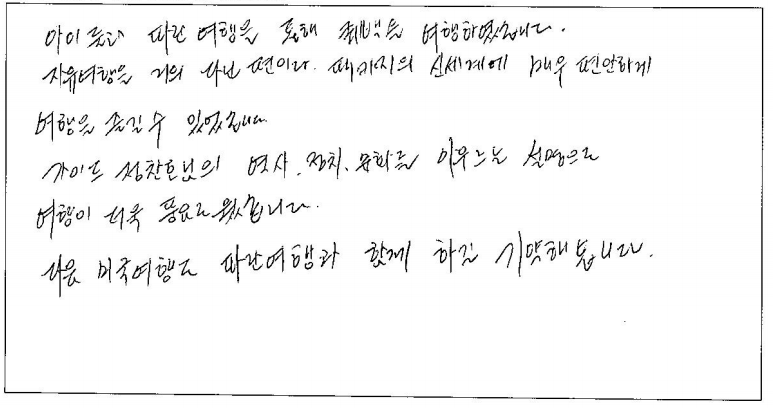 아이들과 파란여행을 통해 퀘벡을 여행하였습니다.
자유여행을 거의 다닌 편이라. 패키지의 신세계에 매우 편안하게
여행을 즐길 수 있었습니다.
가이드 정찬호님의 역사, 정치, 문화를 아우르는 설명으로
여행이 더욱 풍요로웠습니다.
다음 미국여행도 파란여행과 함께 하길 기약해 봅니다.